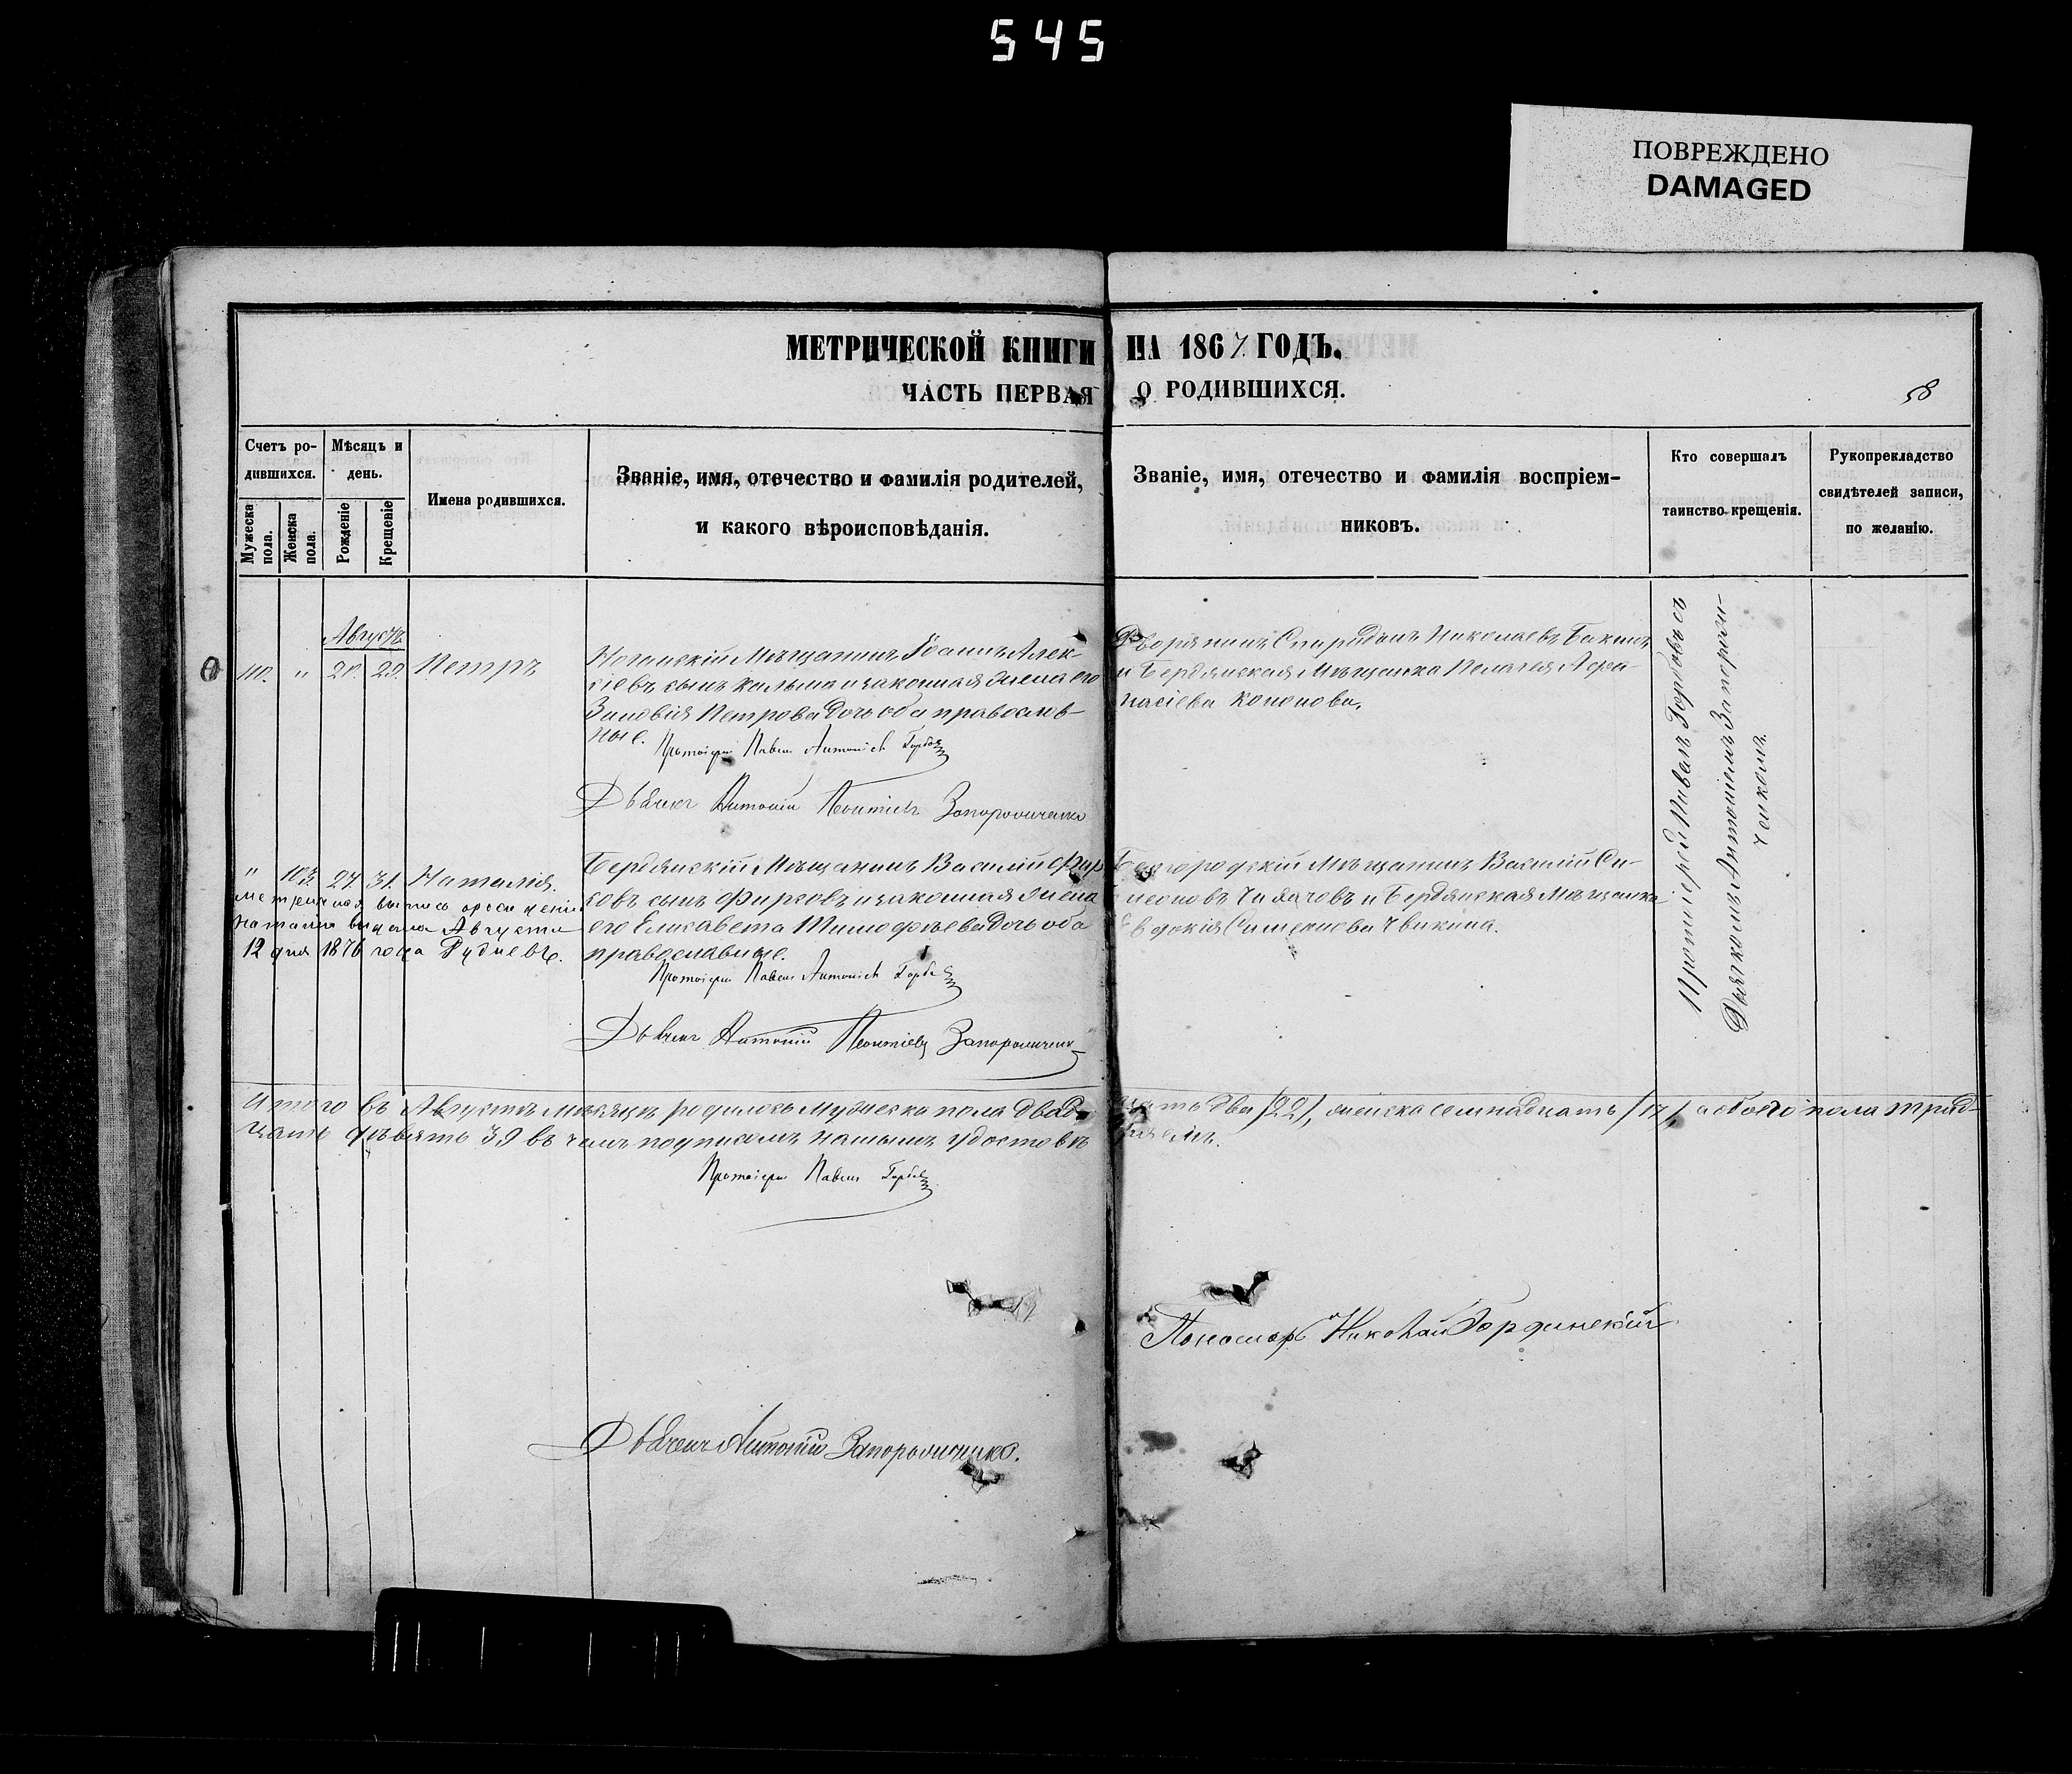 545
ПОВРЕЖДЕНО
DAMAGED
МЕТРИЧЕСКОЙ КНИГИ НА 1867 ГОДЪ.
ЧАСТЬ ПЕРВАЯ О РОДИВШИХСЯ.
58
Счетъ ро-
дившихся.
Мѣсяцъ и
день.
Мужеска
пола.
Женска
пола.
Рожденіе
Крещеніе
Имена родившихся.
Званіе, имя, отечество и фамилія родителей,
и какого вѣроисповѣданія.
Званіе, имя, отечество и фамилія воспріем-
никовъ.
Кто совершалъ
таинство крещенія.
Рукоприкладство
свидѣтелей записи,
по желанію.
Августъ
110. " 20. 29. Петръ
Ногайскій Мѣщанинъ Іоаннъ Алек-
сіевъ сынъ и законная жена его
Зиновія Петрова дочь оба православ-
ные.
Протоіерей Павелъ Антоніевъ Горбовъ
Дьячекъ Антоній Леонтіевъ Запорожченко
Дворянинъ Спиридонъ Николаевъ
и Бердянская Мѣщанка Пелагея Афа-
насіева Кононова.
Протоіерей Павелъ Горбовъ съ
Дьячкомъ Антоніемъ Запорож-
ченкомъ.
" 103. 27. 31. Наталія.
Метрическая выпись о рожденіи
Наталіи выдана Августа
12 дня 1876 года
Бердянскій Мѣщанинъ Василій Фир-
совъ сынъ Фирсовъ и законная жена
его Елисавета Тимофѣева дочь оба
православные.
Протоіерей Павелъ Антоніевъ Горбовъ
Дьячекъ Антоній Леонтіевъ Запорожченко
Бѣлгородскій Мѣщанинъ Василій Си-
меоновъ и Бердянская Мѣщанка
Евдокія Симеонова
Итого въ Августѣ мѣсяцѣ родилось мужеска пола двад-
цать два /22/, женска семнадцать /17/, а обоего пола трид-
цать девять 39 въ чемъ подписомъ нашимъ удостовѣ-
ряемъ.
Протоіерей Павелъ Горбовъ
Пономарь Николай
Дьячекъ Антоній Запорожченко.